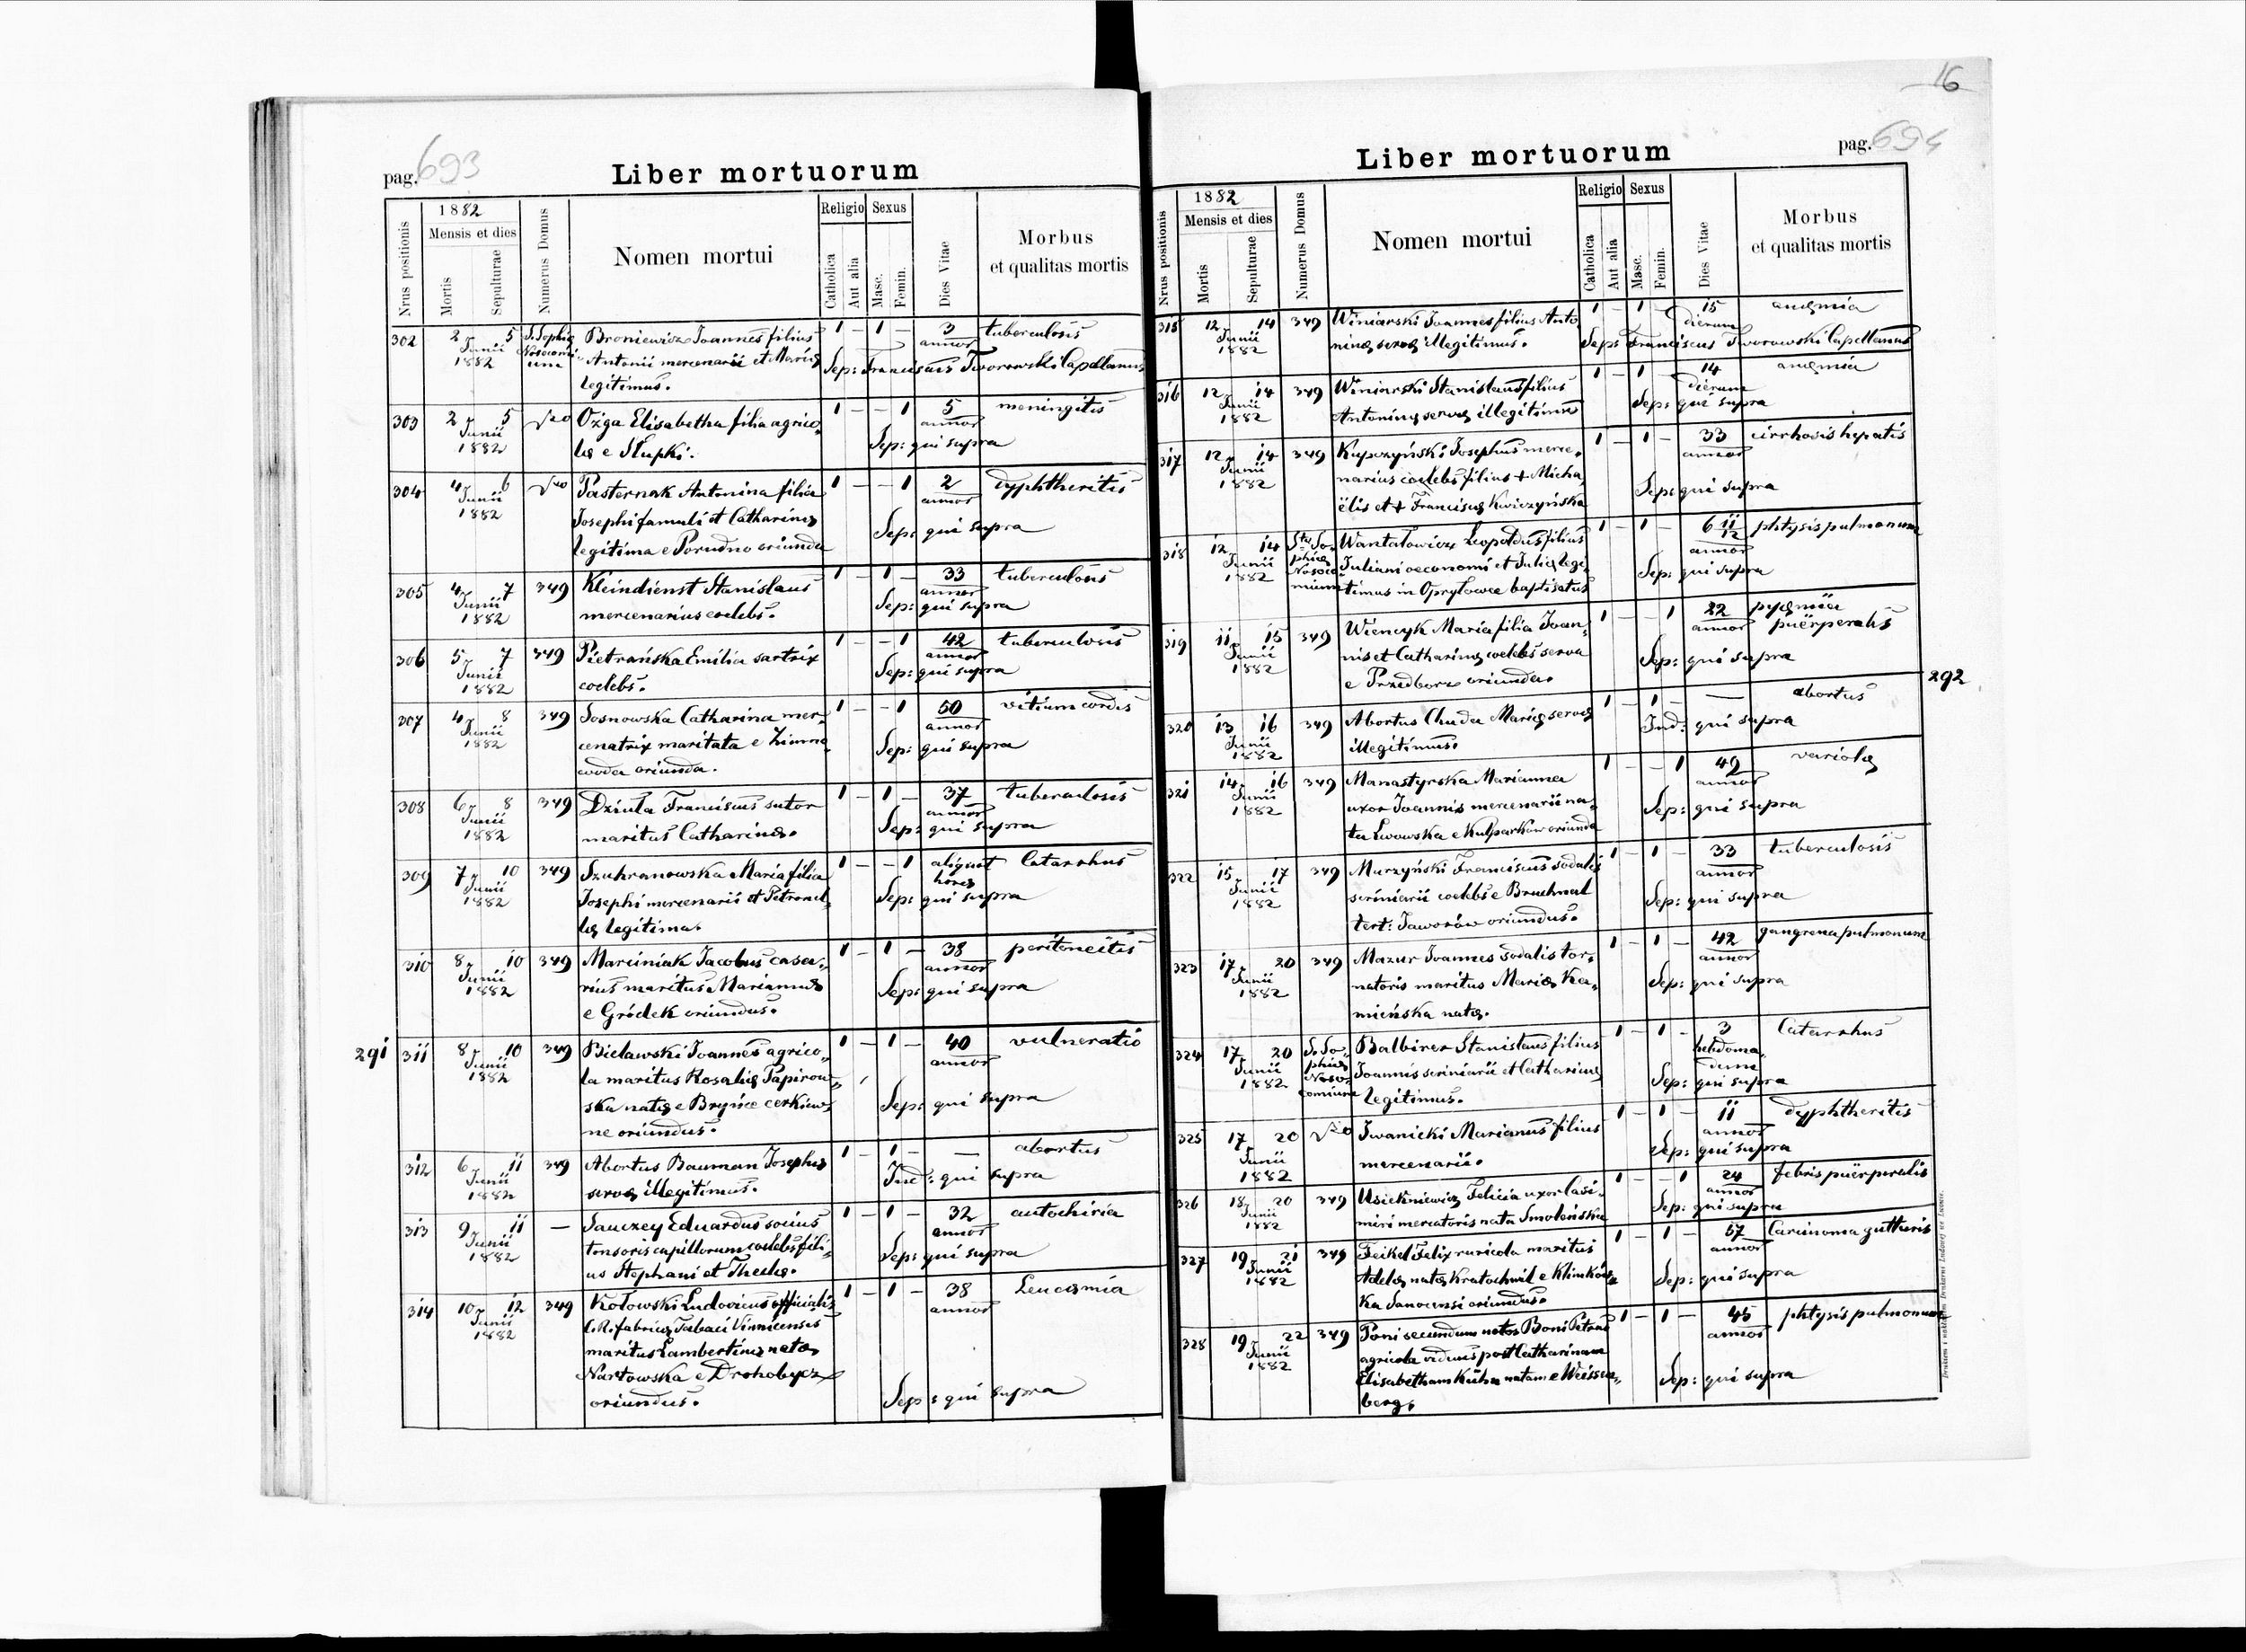 16
pag. 693
Liber mortuorum
Nrus positionis
1882
Mensis et dies
Mortis
Sepulturae
Numerus Domus
Nomen mortui
Religio
Catholica
Aut alia
Sexus
Masc.
Femin.
Dies Vitae
Morbus
et qualitas mortis
302 2 5 S. Sophia Broniewicz Joannes filius 1 – 1 – 3 tuberculosis
Junii Nosocomi- Antonii mercenarii et Mariæ annor
1882 um legitimus. Sep: Franciscus Tworowski Capellanus
303 2 5 Ożga Elisabetha filia agrico- 1 – – 1 5 meningitis
Junii læ e Słupki. annor
1882 Sep: qui supra
304 4 6 Pasternak Antonina filia 1 – – 1 2 dyphtheritis
Junii Josephi famuli et Catharinæ annor
1882 legitima e Porudno oriunda Sep: qui supra
305 4 7 349 Kleindienst Stanislaus 1 – 1 – 33 tuberculosis
Junii mercenarius coelebs. annor
1882 Sep: qui supra
306 5 7 349 Pietrańska Emilia sartrix 1 – – 1 42 tuberculosis
Junii coelebs. annor
1882 Sep: qui supra
307 4 8 349 Sosnowska Catharina mer- 1 – – 1 50 vitium cordis
Junii cenatrix maritata e Zimna annor
1882 woda oriunda. Sep: qui supra
308 6 8 349 Dziuła Franciscus sutor 1 – 1 – 37 tuberculosis
Junii maritus Catharinæ. annor
1882 Sep: qui supra
309 7 10 349 Szuhranowska Maria filia 1 – – 1 aliquot Catarrhus
Junii Josephi mercenarii et Petronel- horæ
1882 læ legitima. Sep: qui supra
310 8 10 349 Marciniak Jacobus casa- 1 – 1 – 38 peritoneitis
Junii rius maritus Mariannæ annor
1882 e Gródek oriundus. Sep: qui supra
291 311 8 10 349 Bielawski Joannes agrico- 1 – 1 – 40 vulneratio
Junii la maritus Rosaliæ Papirow- annor
1882 ska natæ e Brynce cerkiew- Sep: qui supra
ne oriundus.
312 6 11 349 Abortus Bauman Josephæ 1 – 1 – — abortus
Junii servæ illegitimus. Ind: qui supra
1882
313 9 11 — Sauczey Eduardus socius 1 – 1 – 32 autochiria
Junii tonsoris capillorum coelebs fili- annor
1882 us Stephani et Theclæ. Sep: qui supra
314 10 12 349 Kotowski Ludovicus officialis 1 – 1 – 38 Leucæmia
Junii C.R. fabricæ Tabaci Vinnicensis annor
1882 maritus Lambertinæ natæ
Nartowska e Drohobycz
oriundus. Sep: qui supra
pag. 694
Liber mortuorum
Nrus positionis
1882
Mensis et dies
Mortis
Sepulturae
Numerus Domus
Nomen mortui
Religio
Catholica
Aut alia
Sexus
Masc.
Femin.
Dies Vitae
Morbus
et qualitas mortis
315 12 14 349 Winiarski Joannes filius Anto 1 – 1 – 15 anæmia
Junii ninæ servæ illegitimus. dierum
1882 Sep: Franciscus Tworowski Capellanus
316 12 14 349 Winiarski Stanislaus filius 1 – 1 14 anæmia
Junii Antoninæ servæ illegitimus dierum
1882 Sep: qui supra
317 12 14 349 Kupczyński Josephus merce- 1 – 1 – 33 cirrhosis hepatis
Junii narius coelebs filius + Micha annor
1882 ëlis et + Franciscæ Kwiczyńska Sep: qui supra
318 12 14 Stæ So- Wantatowicz Leopoldus filius 1 – 1 – 6 11/12 phtysis pulmonum
Junii phiæ Juliani oeconomi et Juliæ legi- annor
1882 Nosoco- timus in Opryłowce baptisatus Sep: qui supra
mium
319 11 15 349 Wiencyk Maria filia Joan- 1 – – 1 22 pyæmia
Junii nis et Catharinæ coelebs serva annor puërperalis
1882 e Przedborz oriunda. Sep: qui supra
292
320 13 16 349 Abortus Chuda Mariæ servæ 1 – 1 – — abortus
Junii illegitimus. Ind: qui supra
1882
321 14 16 349 Manastyrska Marianna 1 – – 1 49 variola
Junii uxor Joannis mercenarii na- annor
1882 ta Lwowska e Kulparków oriunda Sep: qui supra
322 15 17 349 Murzyński Franciscus sodalis 1 – 1 – 33 tuberculosis
Junii scriniarii coelebs e Bruchnal annor
1882 tert: Jaworów oriundus. Sep: qui supra
323 17 20 349 Mazur Joannes sodalis tor- 1 – 1 – 42 gangrena pulmonum
Junii natoris maritus Mariæ Ka- annor
1882 mieńska natæ. Sep: qui supra
324 17 20 S. So- Balbirer Stanislaus filius 1 – 1 – 3 Catarrhus
Junii phiæ Joannis scriniarii et Catharinæ hebdoma-
1882 Noso- legitimus. dum
comium Sep: qui supra
325 17 20 Iwanicki Marianus filius 1 – 1 – 11 dyphtheritis
Junii mercenarii. annor
1882 Sep: qui supra
326 18 20 349 Usiekniewicz Felicia uxor Casi- 1 – – 1 24 febris puërperalis
Junii miri mercatoris nata Smoleńska annor
1882 Sep: qui supra
327 19 21 349 Feikel Felix ruricola maritus 1 – 1 – 57 Carcinoma gutturis
Junii Adelæ natæ Kratochwil e Klimków- annor
1882 ka Sanocensi oriundus. Sep: qui supra
328 19 22 349 Poni secundum notos Boni Petrus 1 – 1 – 45 phtysis pulmonum
Junii agricola viduus post Catharinam annor
1882 Elisabetham Kühn natam e Weissen- Sep: qui supra
berg.